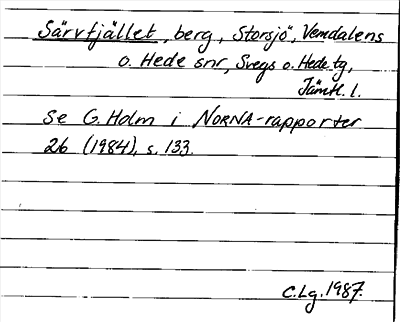 Särvfjället, berg, Storsjö, Vemdalens
o. Hede snr, Svegs o. Hede tg,
Jämtl. l.
Se G. Holm i NORNA-rapporter
26 (1984), s. 133.
C.Lg. 1987.